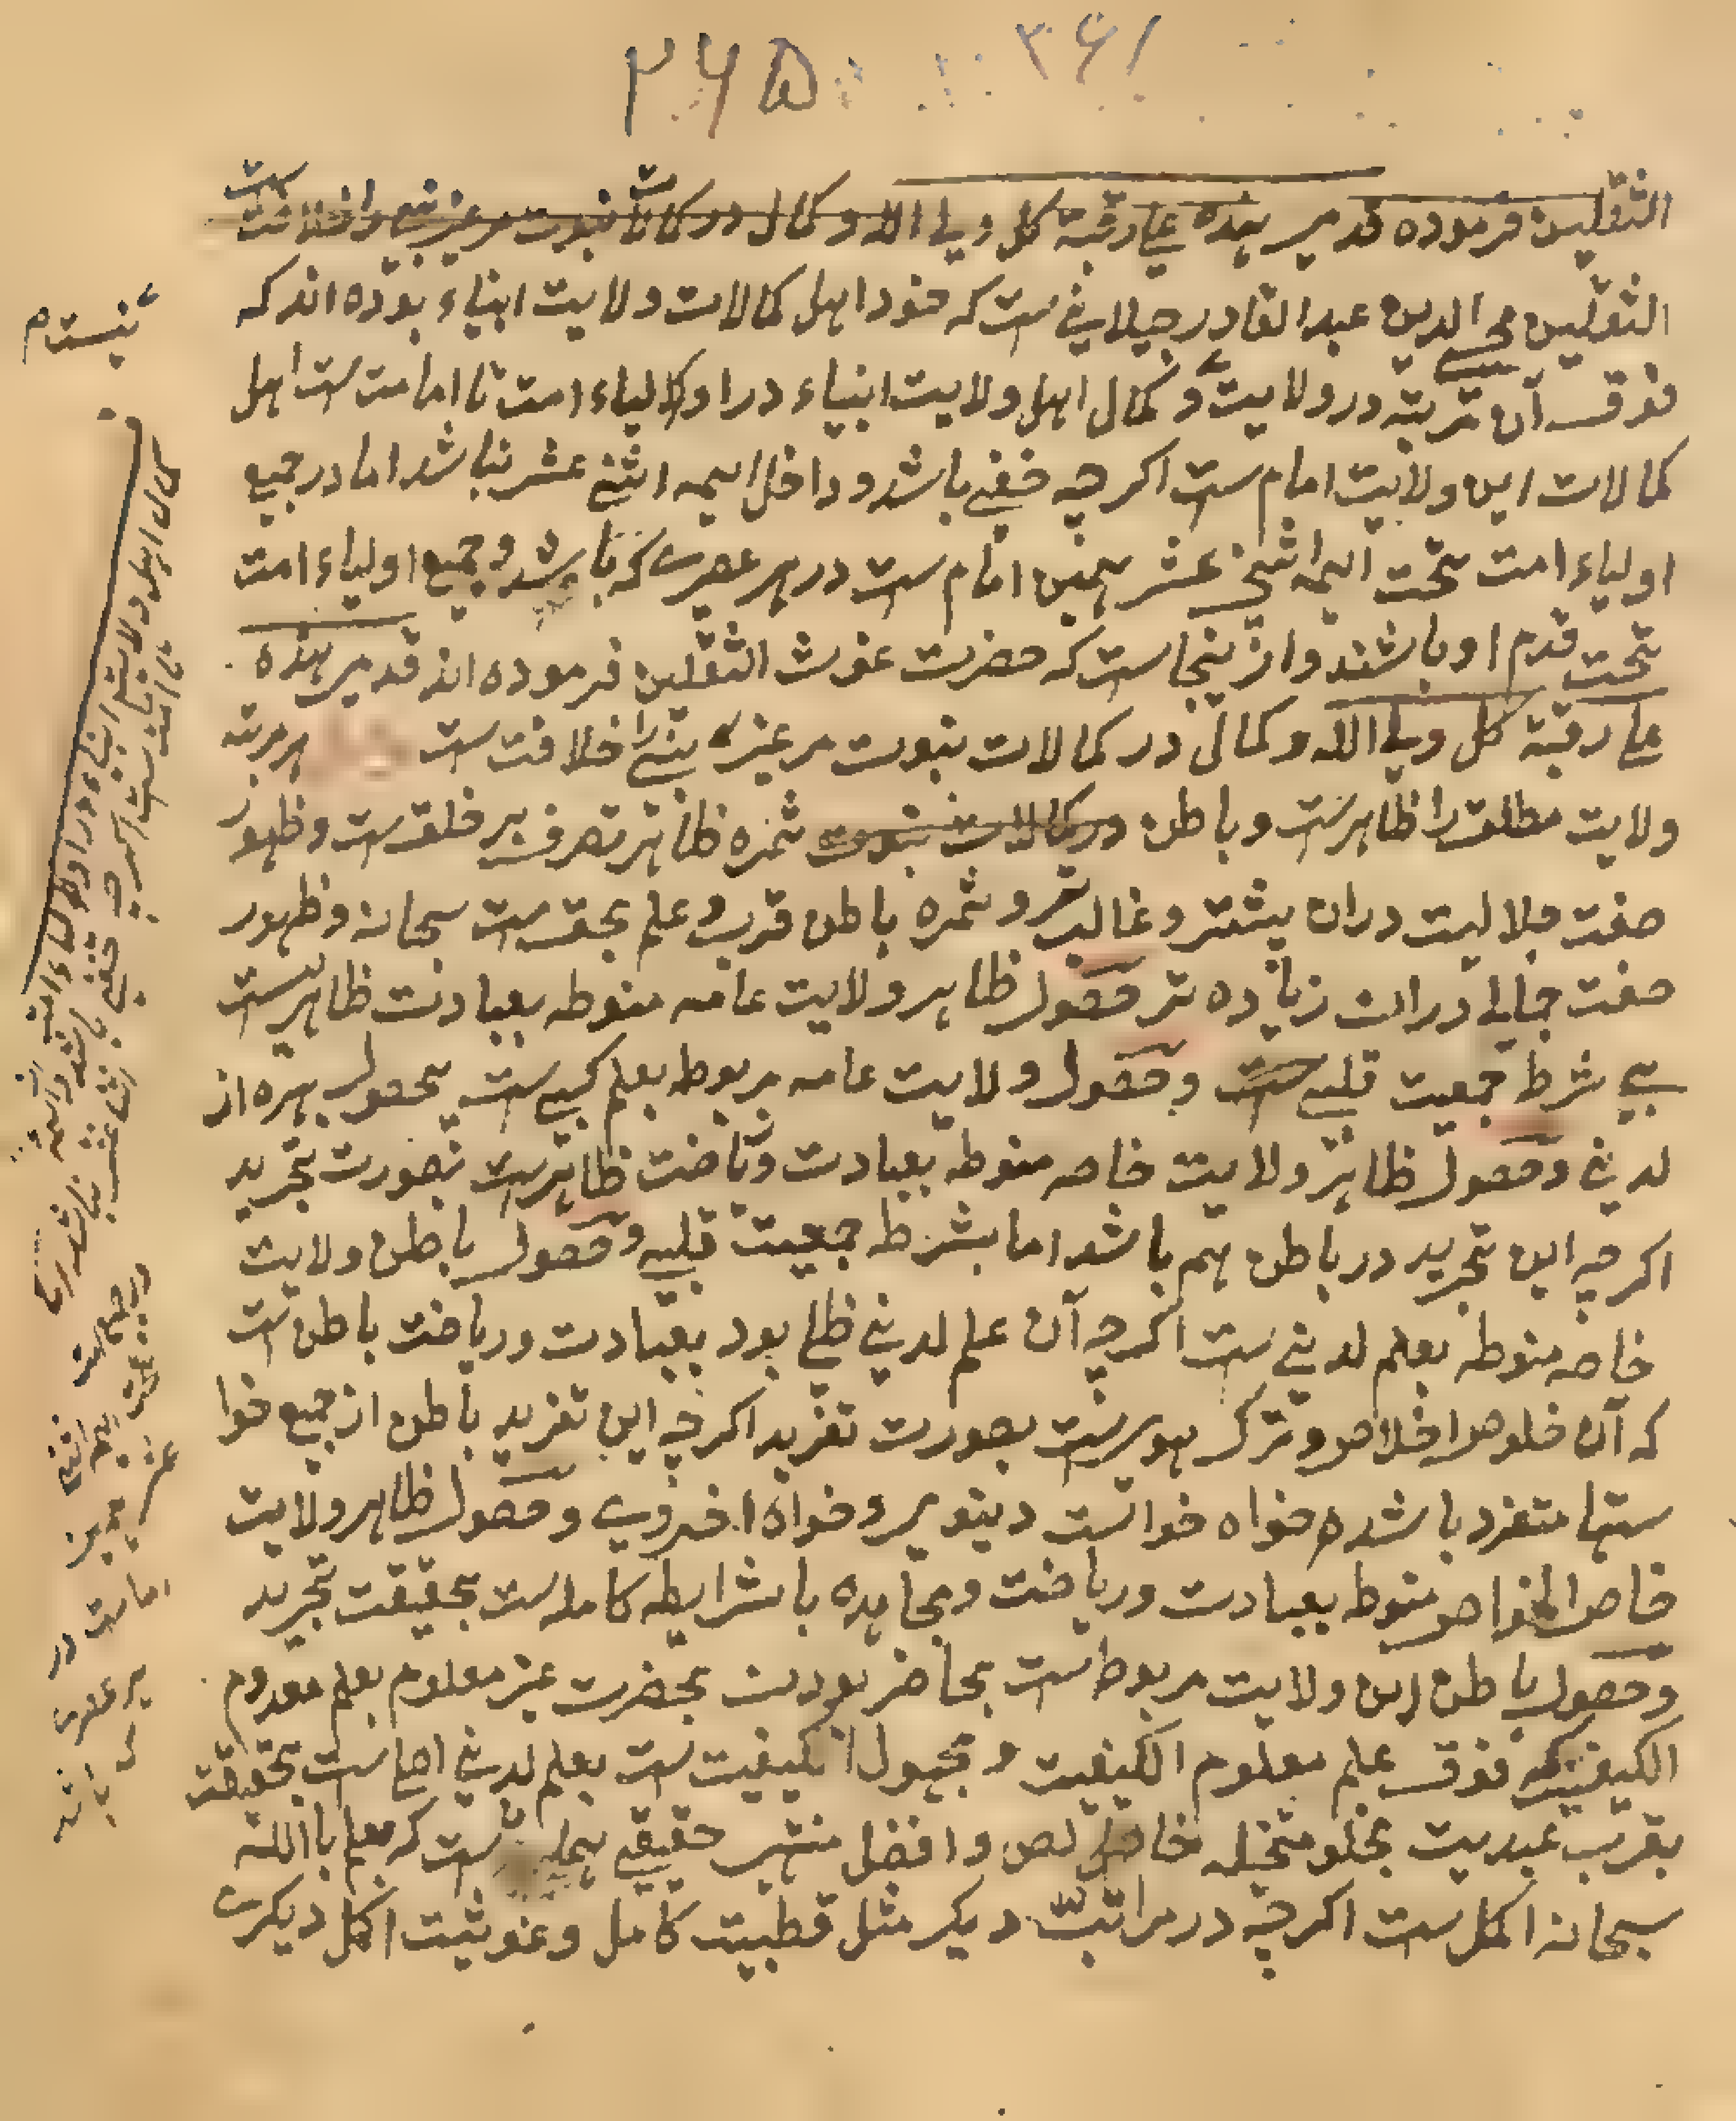 ۲۶۵ ۳۶۱
الثقلین فرموده قدمی هذه علی رقبة کل ولی الله و کمال در کمالات نبوت مر غیر نبی را خلافت ست
الثقلین محی الدین عبد القادر جیلانی ست که خود اهل کمالات ولایت انبیاء بوده اند که
فوق آن مرتبه در ولایت و کمال اهل ولایت انبیاء در اولیاء امت تا امامت ست اهل
کمالات این ولایت امام ست اکرچه خفی باشد و داخل ایمه اثنی عشر نباشد اما در جمیع
اولیاء امت تحت ایمه اثنی عشر همین امام ست در هر عصری که باشد و جمیع اولیاء امت
تحت قدم او باشند و ازینجاست که حضرت غوث الثقلین فرموده اند قدمی هذه
علی رقبة کل ولی الله و کمال در کمالات نبوت مر غیر نبی را خلافت ست هر مرتبه
ولایت مطلق را ظاهرست و باطن در کمالات نبوت ثمره ظاهر تصرف بر خلق ست و ظهور
صفت جلالیت دران بیشتر و غالب تر و ثمره باطن قرب و علم بحق ست سبحانه و ظهور
صفت جمالی دران زیاده تر حصول ظاهر ولایت عامه منوطه بعبادت ظاهر ست
بی شرط جمعیت قلبی ست و حصول ولایت عامه مربوطه بعلم کسبی ست بحصول بهره از
لدنی و حصول ظاهر ولایت خاصه منوطه بعبادت و ریاضت ظاهرست بصورت تجرید
اکرچه این تجرید در باطن هم باشد اما بشرط جمعیت قلبیه و حصول باطن ولایت
خاصه منوطه بعلم لدنی ست اکرچه آن علم لدنی ظلی بود بعبادت و ریاضت باطن ست
که آن خلوص اخلاص و ترک هویست بصورت تفرید اکرچه این تفرید باطن از جمیع خوا
ستها متفرد باشد خواه خواست دینوی و خواه اخروی و حصول ظاهر ولایت
خاص الخواص منوط بعبادت و ریاضت و مجاهده با شرایطه کامله ست بحقیقت تجرید
و حصول باطن این ولایت مربوط ست بحاضر بودن بحضرت غیر معلوم بعلم معدوم
الکیفیت که فوق علم معلوم الکیفیت و مجهول الکیفیت ست بعلم لدنی اصلی ست بحقیقت
بقرب عبدیت بخلو متخیله و افضل منتهی حقیقی ست که علم باالله
سبحانه اکمل ست اکرچه در مراتب دیکر مثل قطبیت کامل و غوثیت اکمل دیکری
نیست م
کمال اهل ولایت انبیاء در اولیاء امت
تا امامت ست اکرچه خفی باشد و داخل ایمه
اثنا عشر نباشد
در جمیع
تحت ایمه اثنی
عشر همین
امام ست در
هر عصری
که باشد